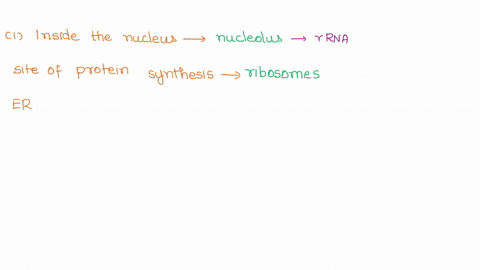 (1) Inside the nucleus → nucleolus → rRNA
site of protein synthesis → ribosomes
ER